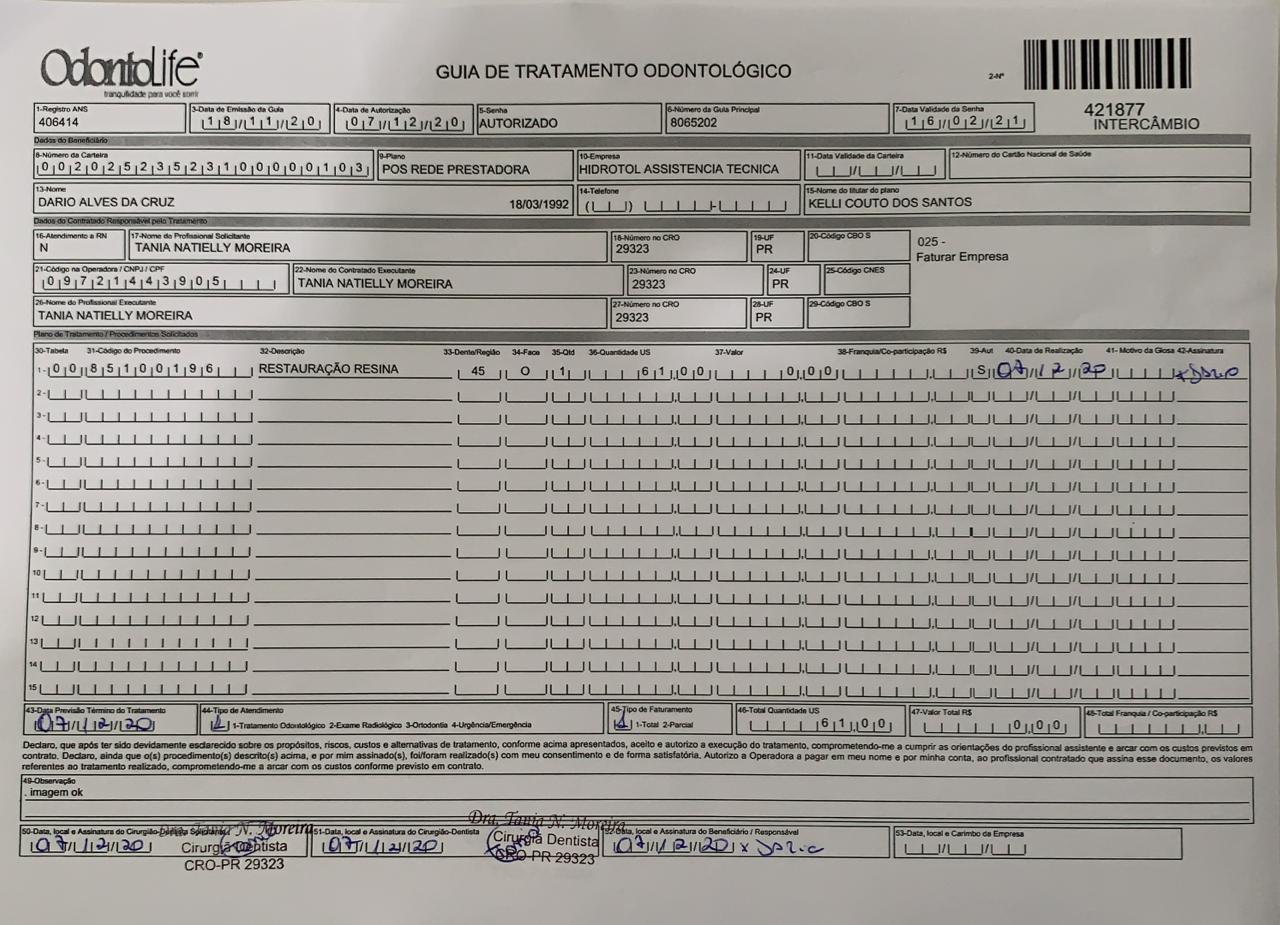 OdontoLife®
tranquilidade para você sorrir
GUIA DE TRATAMENTO ODONTOLÓGICO
2-Nº
421877
INTERCÂMBIO
1-Registro ANS
406414
3-Data de Emissão da Guia
18/11/20
4-Data de Autorização
07/12/20
5-Senha
AUTORIZADO
6-Número da Guia Principal
8065202
7-Data Validade da Senha
16/02/21
Dados do Beneficiário
8-Número da Carteira
00202523523100000103
9-Plano
POS REDE PRESTADORA
10-Empresa
HIDROTOL ASSISTENCIA TECNICA
11-Data Validade da Carteira
12-Número do Cartão Nacional de Saúde
13-Nome
DARIO ALVES DA CRUZ 18/03/1992
14-Telefone
15-Nome do titular do plano
KELLI COUTO DOS SANTOS
Dados do Contratado Responsável pelo Tratamento
16-Atendimento a RN
N
17-Nome do Profissional Solicitante
TANIA NATIELLY MOREIRA
18-Número no CRO
29323
19-UF
PR
20-Código CBO S
025 -
Faturar Empresa
21-Código na Operadora / CNPJ / CPF
09721443905
22-Nome do Contratado Executante
TANIA NATIELLY MOREIRA
23-Número no CRO
29323
24-UF
PR
25-Código CNES
26-Nome do Profissional Executante
TANIA NATIELLY MOREIRA
27-Número no CRO
29323
28-UF
PR
29-Código CBO S
Plano de Tratamento / Procedimentos Solicitados
30-Tabela 31-Código do Procedimento 32-Descrição 33-Dente/Região 34-Face 35-Qtd 36-Quantidade US 37-Valor 38-Franquia/Co-participação R$ 39-Aut 40-Data de Realização 41- Motivo da Glosa 42-Assinatura
1- 00 85100196 RESTAURAÇÃO RESINA 45 O 1 61,00 0,00 S 07/12/20 x Dario
2-
3-
4-
5-
6-
7-
8-
9-
10
11
12
13
14
15
43-Data Previsão Término do Tratamento
07/12/20
44-Tipo de Atendimento
1 1-Tratamento Odontológico 2-Exame Radiológico 3-Ortodontia 4-Urgência/Emergência
45-Tipo de Faturamento
1 1-Total 2-Parcial
46-Total Quantidade US
61,00
47-Valor Total R$
0,00
48-Total Franquia / Co-participação R$
Declaro, que após ter sido devidamente esclarecido sobre os propósitos, riscos, custos e alternativas de tratamento, conforme acima apresentados, aceito e autorizo a execução do tratamento, comprometendo-me a cumprir as orientações do profissional assistente e arcar com os custos previstos em
contrato. Declaro, ainda que o(s) procedimento(s) descrito(s) acima, e por mim assinado(s), foi/foram realizado(s) com meu consentimento e de forma satisfatória. Autorizo a Operadora a pagar em meu nome e por minha conta, ao profissional contratado que assina esse documento, os valores
referentes ao tratamento realizado, comprometendo-me a arcar com os custos conforme previsto em contrato.
49-Observação
. imagem ok
50-Data, local e Assinatura do Cirurgião-Dentista Solicitante
07/12/20
Dra. Tania N. Moreira
Cirurgiã Dentista
CRO-PR 29323
51-Data, local e Assinatura do Cirurgião-Dentista
07/12/20
Dra. Tania N. Moreira
Cirurgiã Dentista
CRO-PR 29323
52-Data, local e Assinatura do Beneficiário / Responsável
07/12/20 x Dario
53-Data, local e Carimbo da Empresa